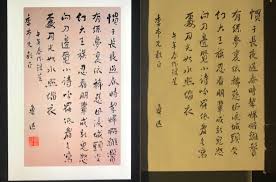 慣于長夜過春時挈婦將雛鬢
有絲夢裏依稀慈母淚城頭變
幻大王旗忍看朋輩成新鬼怒
向刀邊覓小詩吟罷低眉無寫
處月光如水照緇衣
午年春作錄呈
季市兄教正
魯迅
慣于長夜過春時挈婦將雛鬢
有絲夢裏依稀慈母淚城頭變
幻大王旗忍看朋輩成新鬼怒
向刀邊覓小詩吟罷低眉無寫
處月光如水照緇衣
午年春作錄呈
季市兄教正
魯迅